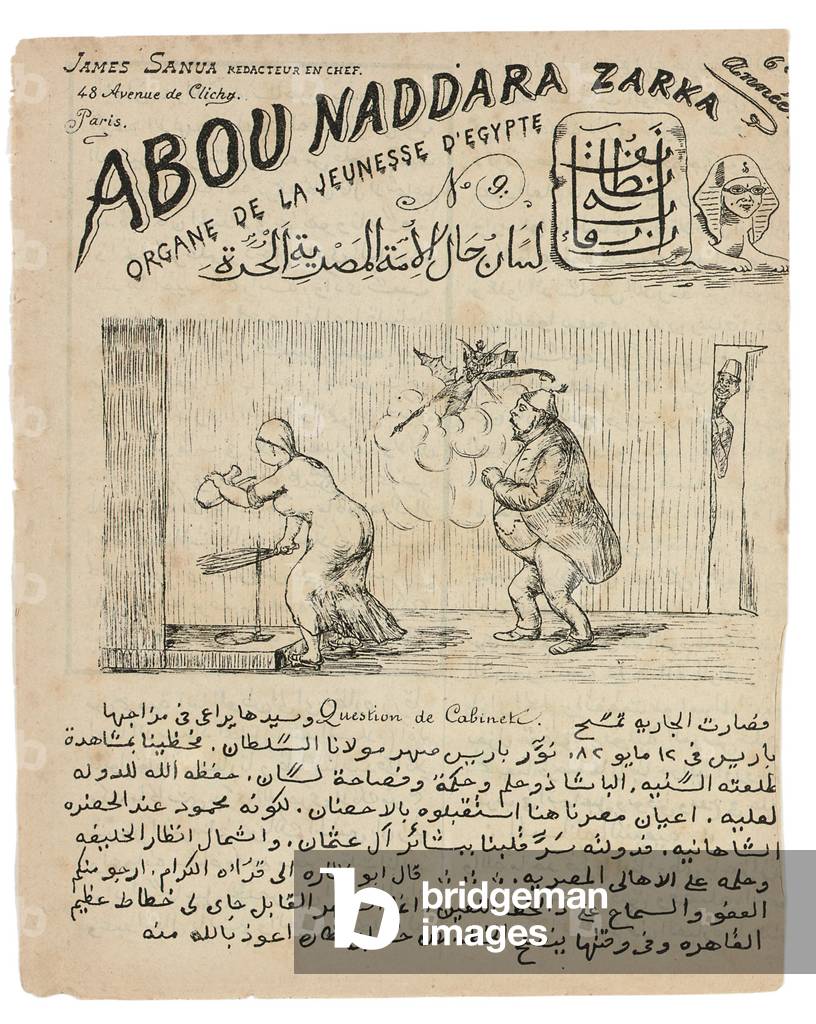 JAMES SANUA REDACTEUR EN CHEF.
48 Avenue de Clichy.
Paris.
6e Année.
ABOU NADDARA ZARKA
ORGANE DE LA JEUNESSE D'EGYPTE
No 9.
لسان حال الأمة المصرية الحرة
Question de Cabinet.
فصارت الجاريه تمسح وسيدها يراعى فى مزاجها
باريس فى ١٢ مايو ٨٢، نوّر باريس صهر مولانا السلطان. فحظينا بمشاهدة
طلعته السنيه. الباشا ذو علم وحكمة وفصاحة لسان. حفظه الله للدوله
لعليه. اعيان مصرنا هنا استقبلوه بالاحضان. لكونه محمود عند الحضره
الشاهانيه. فدولته سرّ قلبنا ببشائر آل عثمان. واشمال انظار الخليفه
وحلمه على الاهالى المصريه. قال ابو نظاره الى قرّاءه الكرام. ارجو منكم
العفو والسماح على القابل جاى لى خطاط عظيم
القاهره وفى وقتها اعوذ بالله منه
bridgeman
images